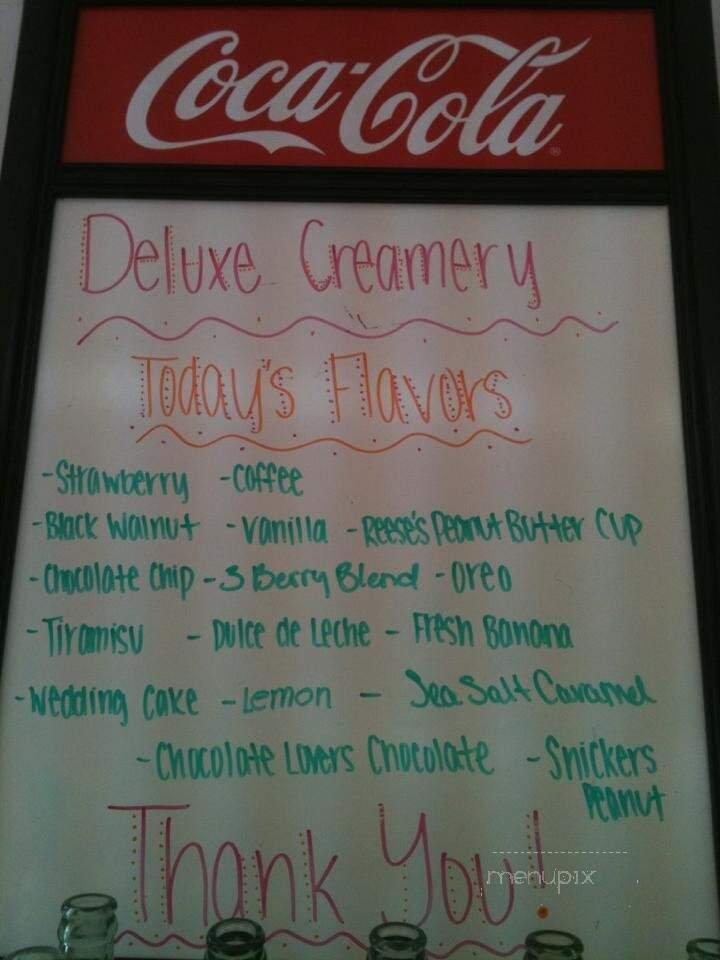 Coca-Cola
Deluxe Creamery
Today's Flavors
-Strawberry -Coffee
-Black Walnut -Vanilla -Reese's Peanut Butter Cup
-Chocolate Chip -3 Berry Blend -Oreo
-Tiramisu - Dulce de Leche - Fresh Banana
-Wedding Cake -Lemon - Sea Salt Caramel
-Chocolate Lovers Chocolate -Snickers
Peanut
Thank You!
menupix